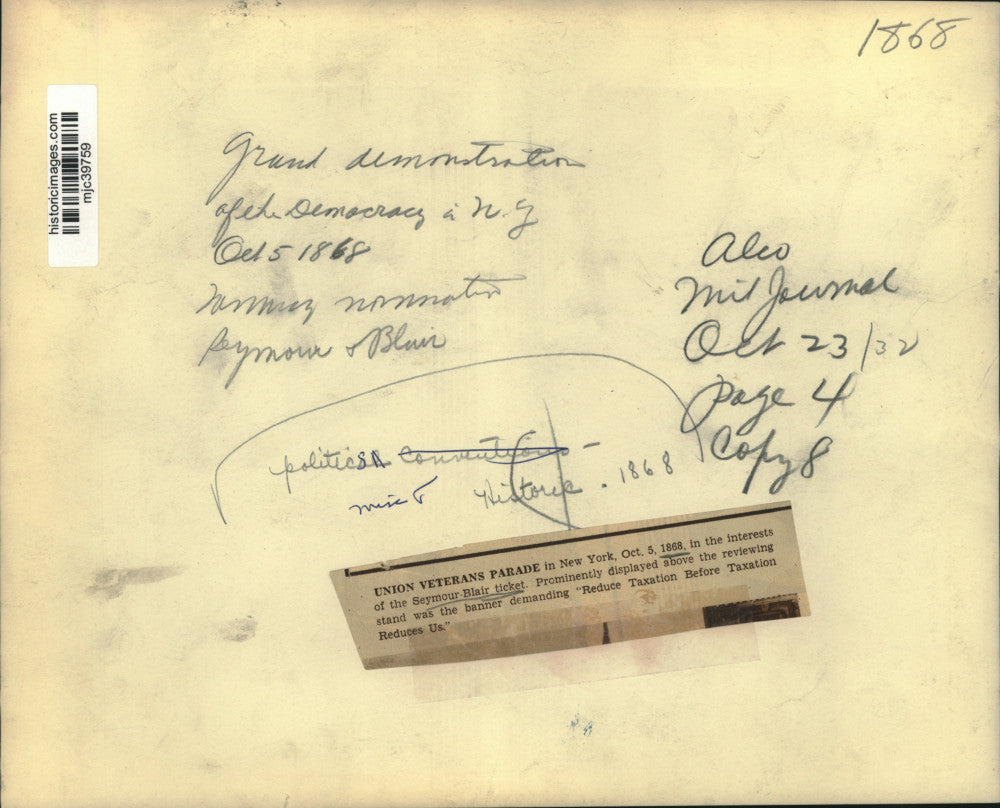 1868
historicimages.com
mjc39759
Grand demonstration
of the Democracy in N.Y
Oct 5 1868
Tammany nomination
Seymour & Blair
Also
Mil Journal
Oct 23/32
Page 4
Copy 8
political conventions -
misc
Historic . 1868
UNION VETERANS PARADE in New York, Oct. 5, 1868, in the interests
of the Seymour-Blair ticket. Prominently displayed above the reviewing
stand was the banner demanding "Reduce Taxation Before Taxation
Reduces Us."